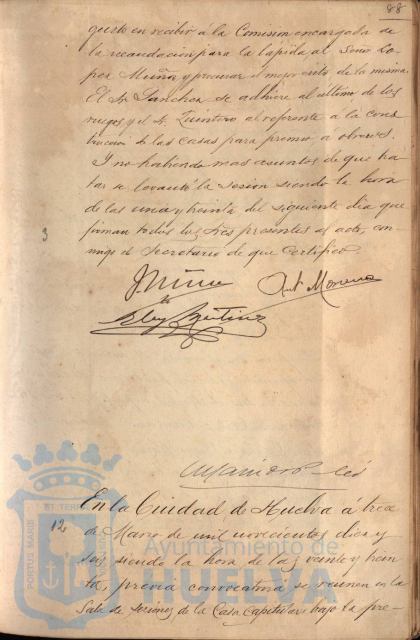 88
gusto en recibir á la Comision encargada de
la recaudacion para la lápida al Señor Lo-
pez Muñoz y procurar el mejor exito de la misma.
El Sr. Sanchez se adhiere al ultimo de los
ruegos y el Sr. Quintero al referente á la cons-
truccion de las casas para premio a obreros.
Y no habiendo mas asuntos de que tra-
tar se levantó la sesion siendo la hora
de las una y treinta del siguiente dia que
firman todos los Sres presentes al acto, con-
migo el Secretario de que certifico.
3
Ant Moreno
En la Ciudad de Huelva á trece
12
de Marzo de mil novecientos diez y
seis, siendo la hora de las veinte y trein
ta, previa convocatoria se reunen en la
Sala de Sesiones de la Casa Capitular bajo la pre-
PORTUS MARIS
ET TERRE
Ayuntamiento de
HUELVA